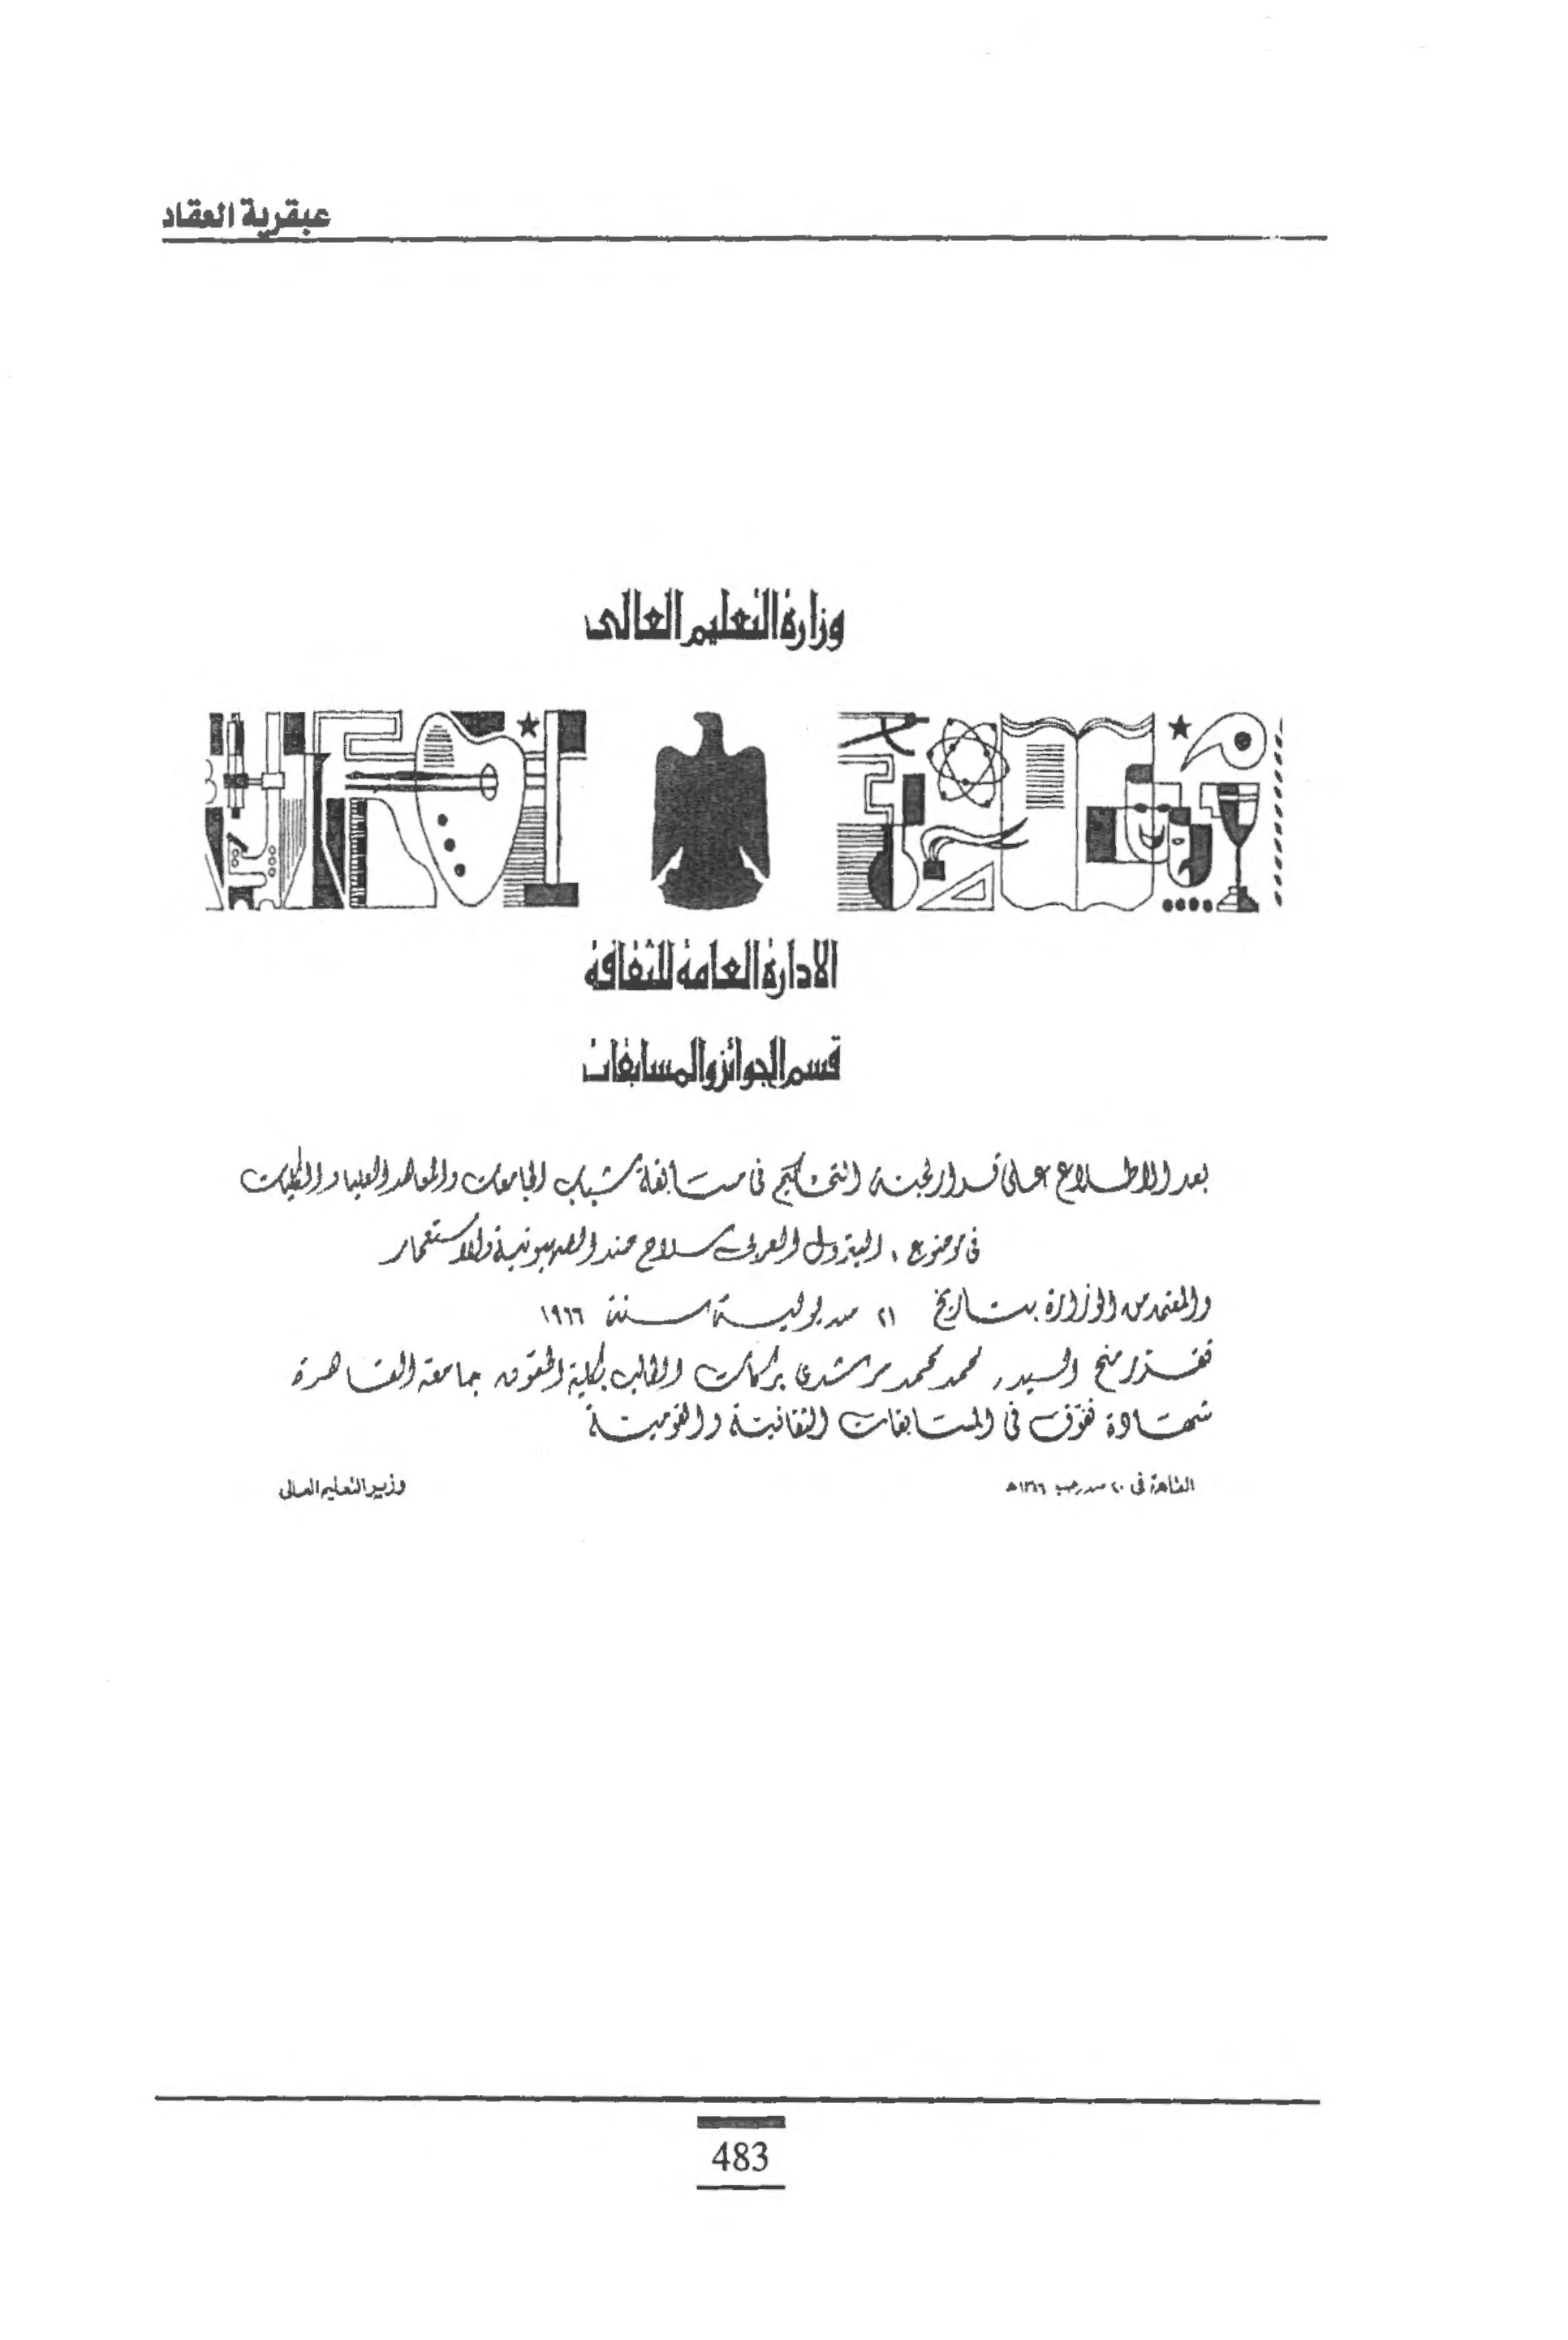 عبقرية العقاد
وزارة التعليم العالى
الادارة العامة للثقافة
قسم الجوائز والمسابقات
بعد الاطلاع على قرار لجنة التحكيم فى مسابقة شباب الجامعات والمعاهد العليا والكليات
فى موضوع، البترول العربى سلاح ضد الصهيونية والاستعمار
والمعتمد من الوزارة بتاريخ ٢١ من يوليـة سنة ١٩٦٦
تقرر منح السيد، محمد محمد مرشدى بركات الطالب بكلية الحقوق جامعة القاهرة
شهادة تفوق فى المسابقات الثقافية والقومية
القاهرة فى ٢٠ من رجب ١٣٨٦هـ
وزير التعليم العالى
483